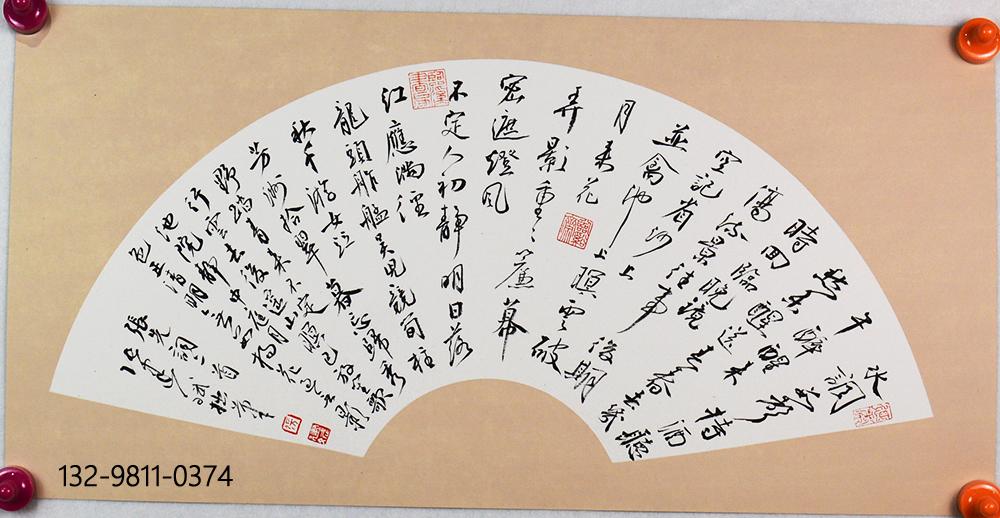 水調數聲持酒聽
午醉醒來
愁未醒送春春去幾
時回臨晚鏡
傷流景往事後期
空記省沙上
並禽池上暝雲破
月來花
弄影重重簾幕
密遮燈風
不定人初靜明日落
紅應滿徑
龍頭舴艋吳兒競筍柱
秋千游女並
芳洲拾翠暮忘歸秀
野踏青來不定
行雲去後遙山暝已放笙歌
池院靜中庭月
色正清明無數楊花過無影
張先詞二首
132-9811-0374